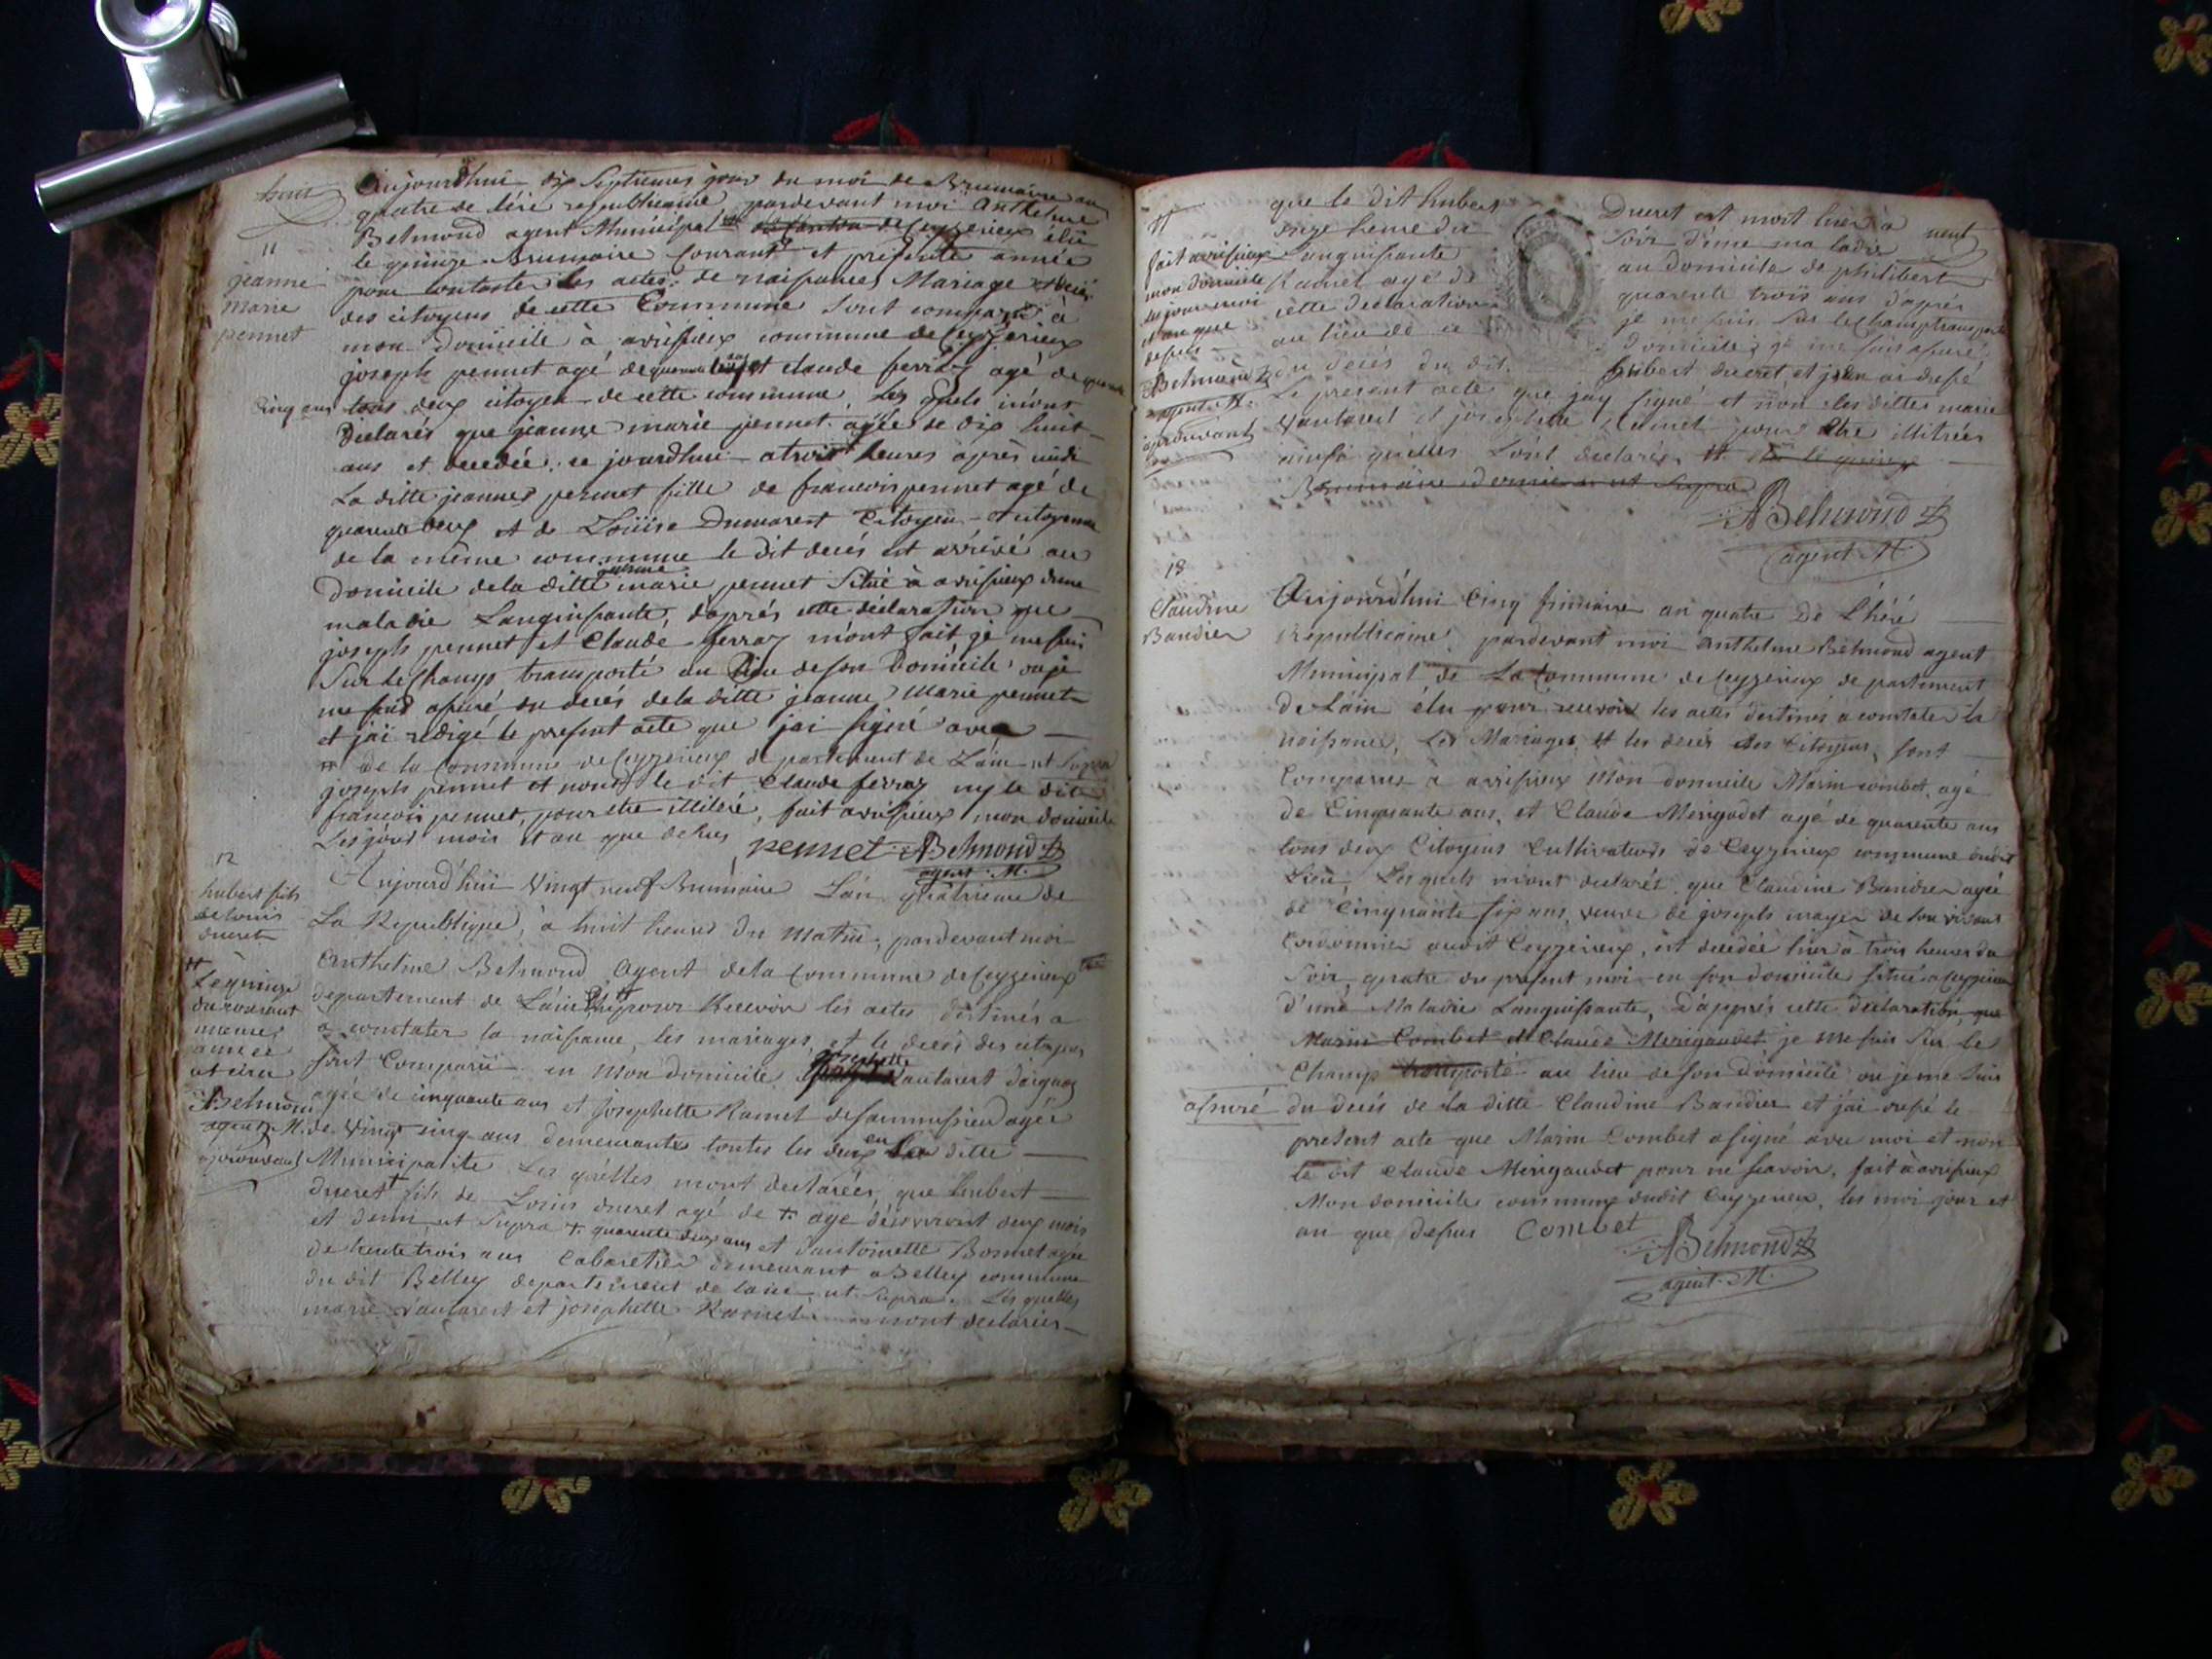 huit
11
jeanne
marie
pennet
Aujourdhui dix Septiemes jour du moi de Brumaire an
quatre de lére republicaine pardevant moi Anthelme
Behmond agent Municipal du Canton de Ceyzerieux élu
le quinze Brumaire Courant et presente année
pour Constater les actes de naissances Mariage et deces
des citoyens de cette Commune Sont comparu à
mon domicile à avrissieux commune de Ceyzerieux
joseph pennet agé de quarante ans et claude ferraz agé de quarente
Cinq ans tous deux citoyen de cette commune, Les quels m'ont
Declarés que jeanne marie pennet agée de dix huit
ans et decedée ce jourdhui a trois heures après midi
La ditte jeanne pennet fille de francois pennet agé de
quarente deux et de Loüise Dumarest Citoyen et citoyenne
de la même commune le dit decés est arrivé au
Domicile de la ditte jeanne marie pennet Situé à avrissieux dune
maladie Languissante, daprés cette déclaration que
joseph pennet et Claude ferraz m'ont fait je me suis
Sur le Champ transporté au Lieu de son Domicile ou je
me suis assuré du decés de la ditte jeanne Marie pennet
et j'ai redigé le present acte que j'ai signé avec
de la Commune de Ceyzerieux departement de Lain ut Supra
joseph pennet et nond le dit Claude ferraz ny le dit
francois pennet, pour etre illiteré, fait avrissieux mon domicile
Les jour mois et an que dessus pennet ABehmond
agent. M.
12
hubert fils
de Louis
ducret
Aujourd'hui Vingt neuf Brumaire L'an quatrieme de
La Republique, à huit heures du matin, pardevant moi
Anthelme Behmond Agent de la Commune de Ceyzerieux
departement de L'ain Elu pour Recevoir les actes destinés a
a constater la naissance, les mariages, et le decés des citoyens
Sont Comparu en Mon domicile josephette Vautarest
agée de cinquante ans et Josephette Ramel agée
de Vingt cinq ans demeurantes toutes les deux en la ditte
Municipalité Les quelles m'ont declarées, que hubert
ducret fils de Louis ducret agé de
et demi ut Supra + quarente deux ans et d'antoinette Bonnet agée
de trente trois ans Cabaretier demeurant a Belley commune
du dit Belley departement de lain ut Supra. Les quelles
marie Vautarest et josephette Ramel m'ont declarées
Le quinze
du courant
meme
année
et élu
Behmond
agent M.
aprouvant
neuf
que le dit hubert Ducret est mort hier a
onze heure du Soir d'une maladie
Languissante au domicile de philibert
Ramel agé de quarente trois ans daprés
cette declaration je me suis Sur le Champ transporté
au lieu de ce domicile; je me suis assuré
du decés du dit hubert ducret, et j'en ai dressé
Le present acte que jay signé et non les dittes marie
Vautarest et josephette Ramel pour etre illitrées
ainsi qu'elles L'ont declarées
Brumaire dernier ut Supra
ABehmond
agent. M.
fait avrissieux
mon domicile
les jour moi
et an que
dessus
Behmond
agent. M.
aprouvant
13
Claudine
Bandier
Aujourd'hui Cinq frimaire an quatre De L'héré
Republicaine, pardevant moi Anthelme Behmond agent
Municipal de La Commune de Ceyzerieux departement
De L'ain élu pour recevoir les actes destinés a constater la
naissance, Les Mariages, et les decés des Citoyens, Sont
Comparus à avrissieux Mon domicile Marin combet, agé
de Cinquante ans, et Claude Merigodet agé de quarente ans
tous deux Citoyens Cultivateurs de Ceyzerieux commune dudit
Lieu, Lesquels m'ont declarés que Claudine Bandier agée
de Cinquante six ans, veuve de joseph mayer de son vivant
Cordonnier audit Ceyzerieux, est decedée hier à trois heures du
Soir, quatre du present moi en son domicile situé a Ceyzerieux
d'une Maladie Languissante, D'apprés cette declaration, que
Marin Combet et Claude Merigaudet je me suis Sur le
Champ transporté au lieu de son domicile ou je me suis
assuré du decés de la ditte Claudine Bandier et j'ai dressé le
present acte que Marin Combet a signé avec moi et non
le dit Claude Merigaudet pour ne scavoir, fait à avrissieux
Mon domicile commune dudit Ceyzerieux, les moi jour et
an que dessus Combet
ABehmond
agent. M.